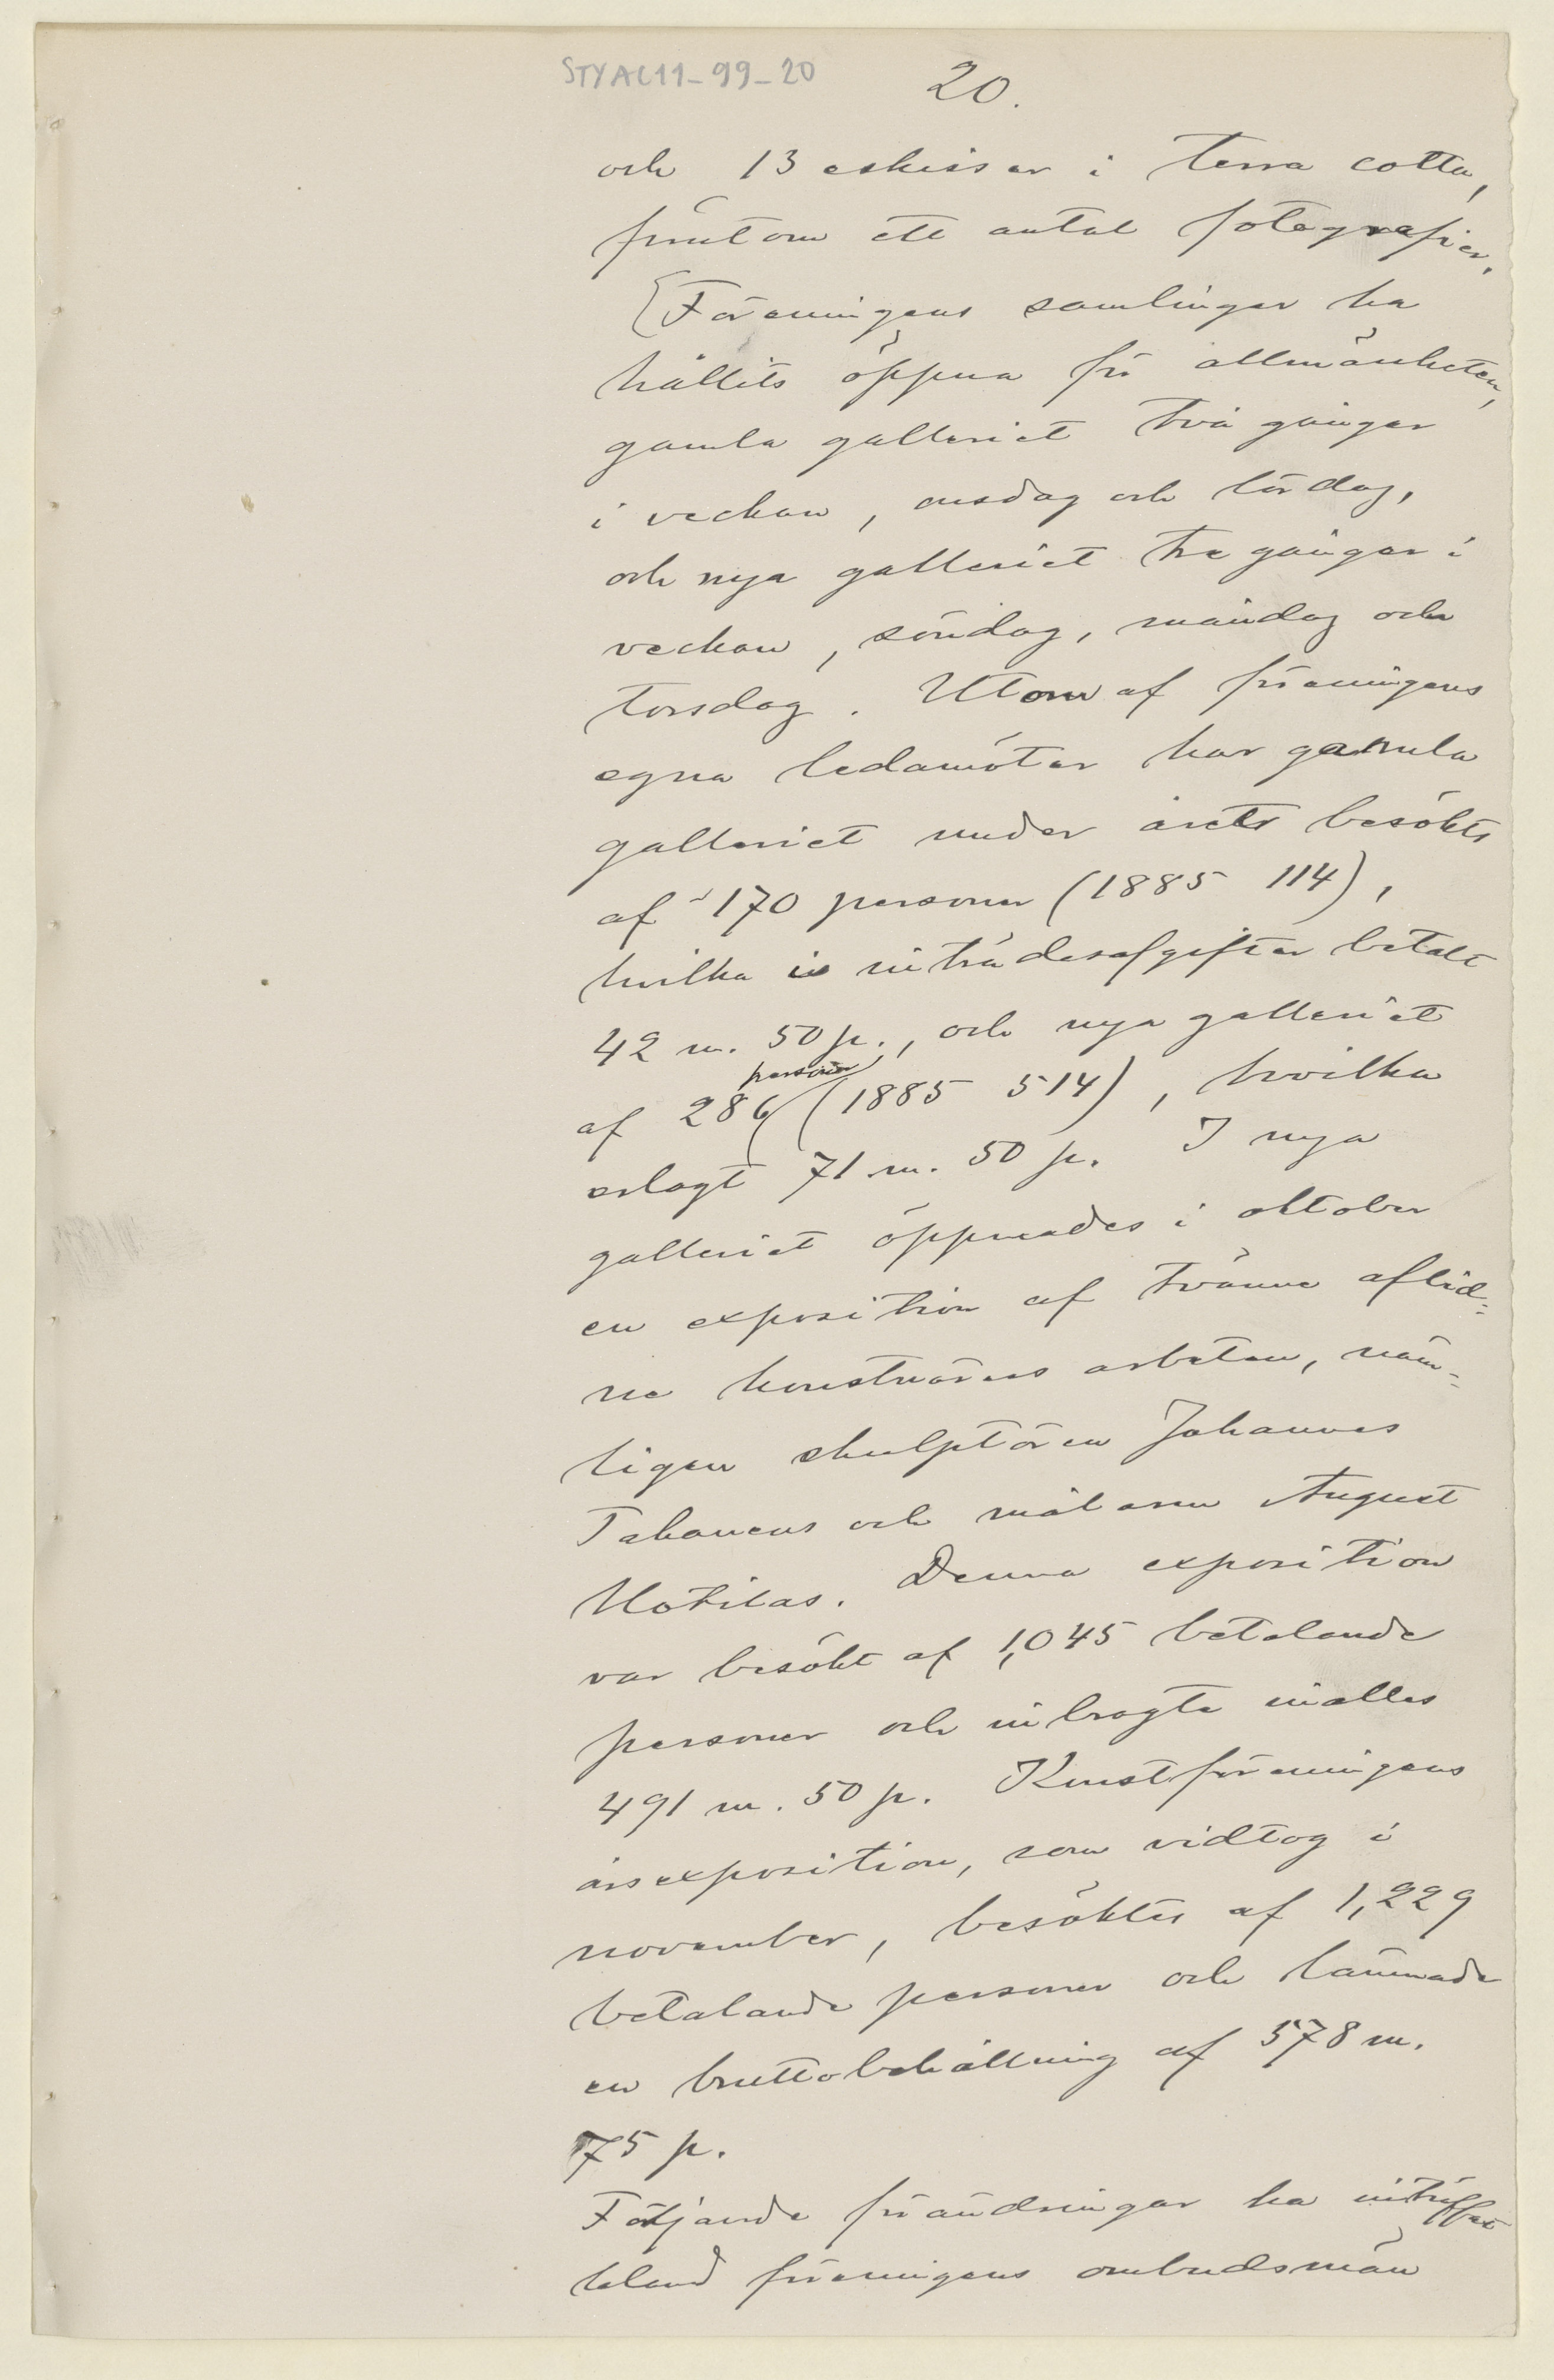 STYAC11-99-20
20.
och 13 eskisser i terra cotta,
förutom ett antal fotografier.
[Föreningens samlingar ha
hållits öppna för allmänheten,
gamla galleriet två gånger
i veckan, onsdag och lördag,
och nya galleriet tre gånger i
veckan, söndag, måndag och
torsdag. Utom af föreningens
egna ledamöter har gamla
galleriet under året besökts
af 170 personer (1885 114),
hvilka i inträdesafgifter betalt
42 m. 50 p., och nya galleriet
personer
af 286 (1885 514), hvilka
erlagt 71 m. 50 p. I nya
galleriet öppnades i oktober
en exposition af tvänne aflid-
ne konstnärers arbeten, näm-
ligen skulptören Johannes
Takanens och målaren August
Uotilas. Denna exposition
var besökt af 1,045 betalande
personer och inbragte inalles
491 m. 50 p. Konstföreningens
årsexposition, som vidtog i
november, besöktes af 1,229
betalande personer och lämnade
en bruttobehållning af 578 m.
75 p.
Följande förändringar ha inträffat
bland föreningens ombudsmän